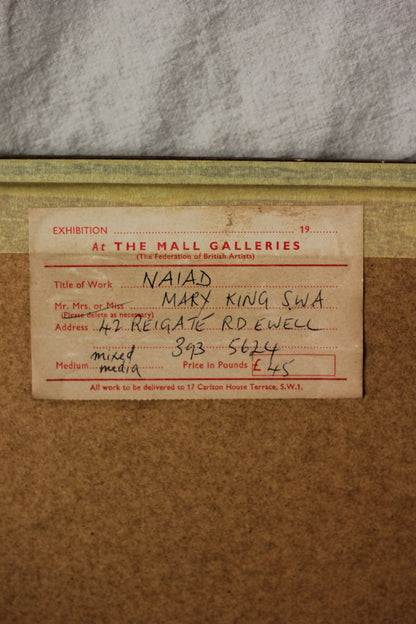 EXHIBITION ........................................ 19........
At THE MALL GALLERIES
(The Federation of British Artists)
Title of Work NAIAD
Mr. Mrs. or Miss MARY KING S.W.A
(Please delete as necessary)
Address 42 REIGATE RD EWELL
393 5624
Medium mixed media Price in Pounds £ 45
All work to be delivered to 17 Carlton House Terrace, S.W.1.